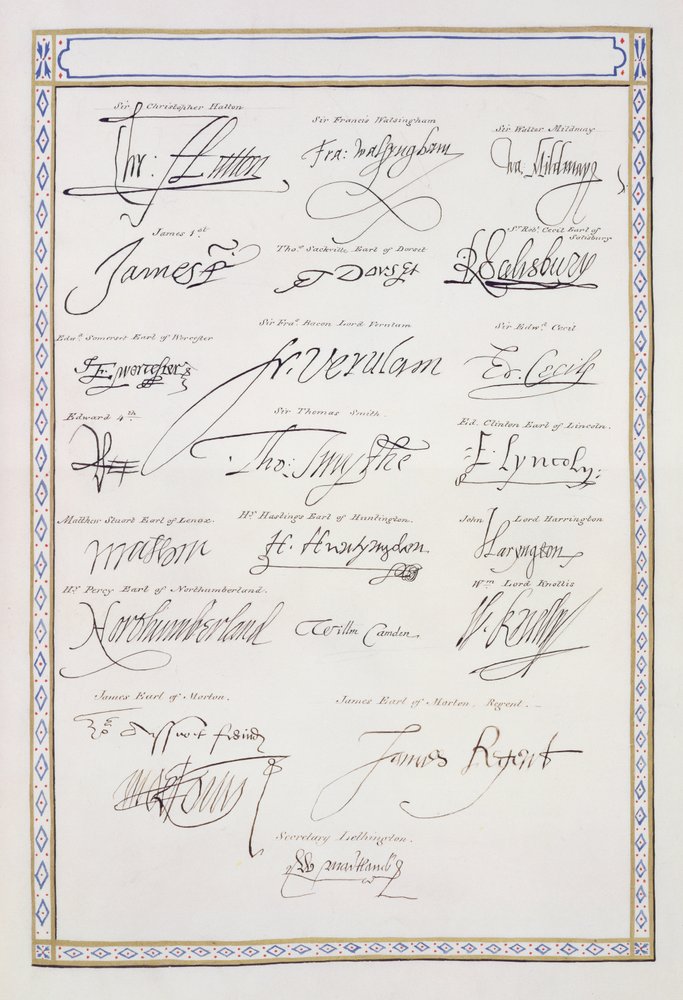 Sir Christopher Hatton
Chr: Hatton
Sir Francis Walsingham
Fra: Walsyngham
Sir Walter Mildmay
Wa. Mildmay
James 1st
James R
Thos. Sackville Earl of Dorset
T Dorset
Sr. Robt. Cecil Earl of
Salisbury
R Salisbury
Edwd. Somerset Earl of Worcester
E. Worcester
Sir Fras. Bacon Lord Verulam
fr. Verulam
Sir Edwd. Cecil
Ed. Cecyll
Edward 4th
Sir Thomas Smith.
Tho: Smythe
Ed. Clinton Earl of Lincoln.
E. Lyncoln
Matthew Stuart Earl of Lenox.
Hy. Hastings Earl of Huntington.
H. Huntyngdon
John Lord Harrington
Haryngton
Hy. Percy Earl of Northumberland.
Northumberland
Willm Camden
Wm Lord Knollis
W. Knollys
James Earl of Morton.
James Earl of Morton, Regent.
James Regent
Secretary Lethington.
W maitland